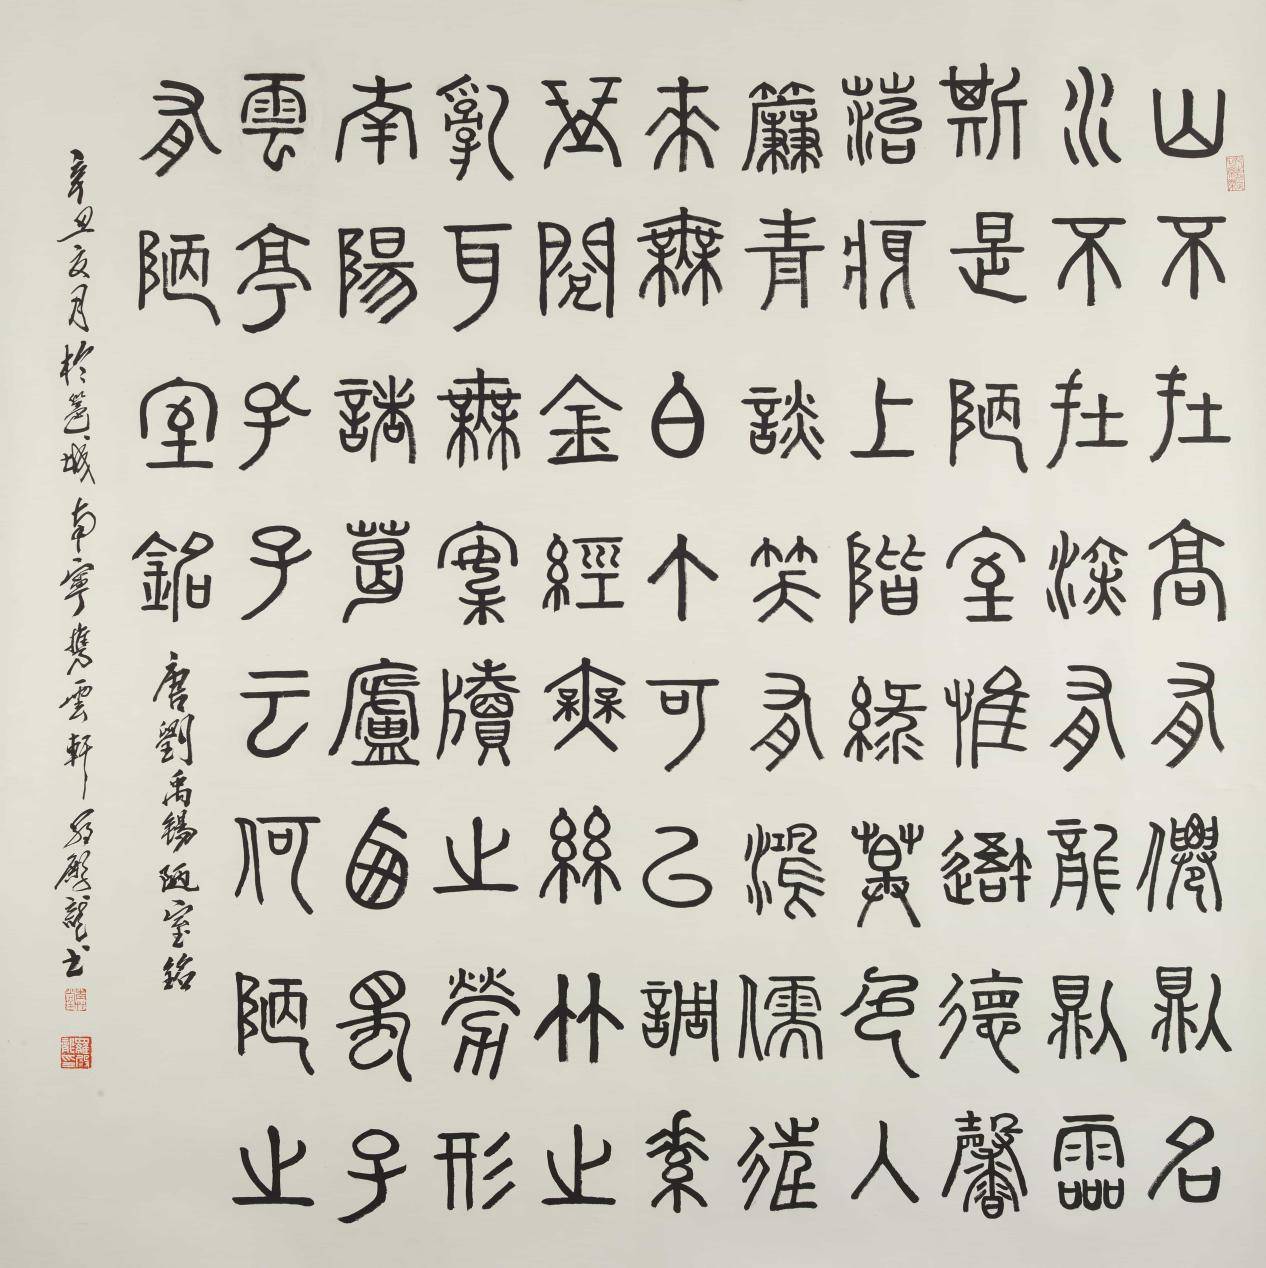 山不在高有僊則名
水不在深有龍則靈
斯是陋室惟吾德馨
菭痕上階綠草色入
簾青談笑有鴻儒往
來無白丁可以調素
琴閱金經無絲竹之
亂耳無案牘之勞形
南陽諸葛廬西蜀子
雲亭孔子云何陋之
有陋室銘 唐劉禹錫陋室銘
辛丑亥月於邕城南寧攜雲軒羅殿龍書